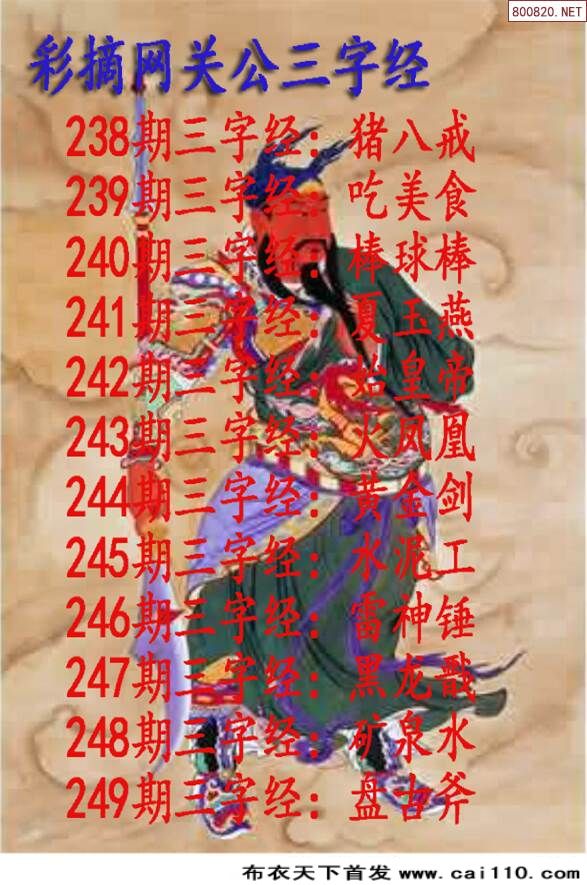 800820.NET
彩摘网关公三字经
238期三字经：猪八戒
239期三字经：吃美食
240期三字经：棒球棒
241期三字经：夏玉燕
242期三字经：始皇帝
243期三字经：火凤凰
244期三字经：黄金剑
245期三字经：水泥工
246期三字经：雷神锤
247期三字经：黑龙戬
248期三字经：矿泉水
249期三字经：盘古斧
布衣天下首发 www.cai110.com